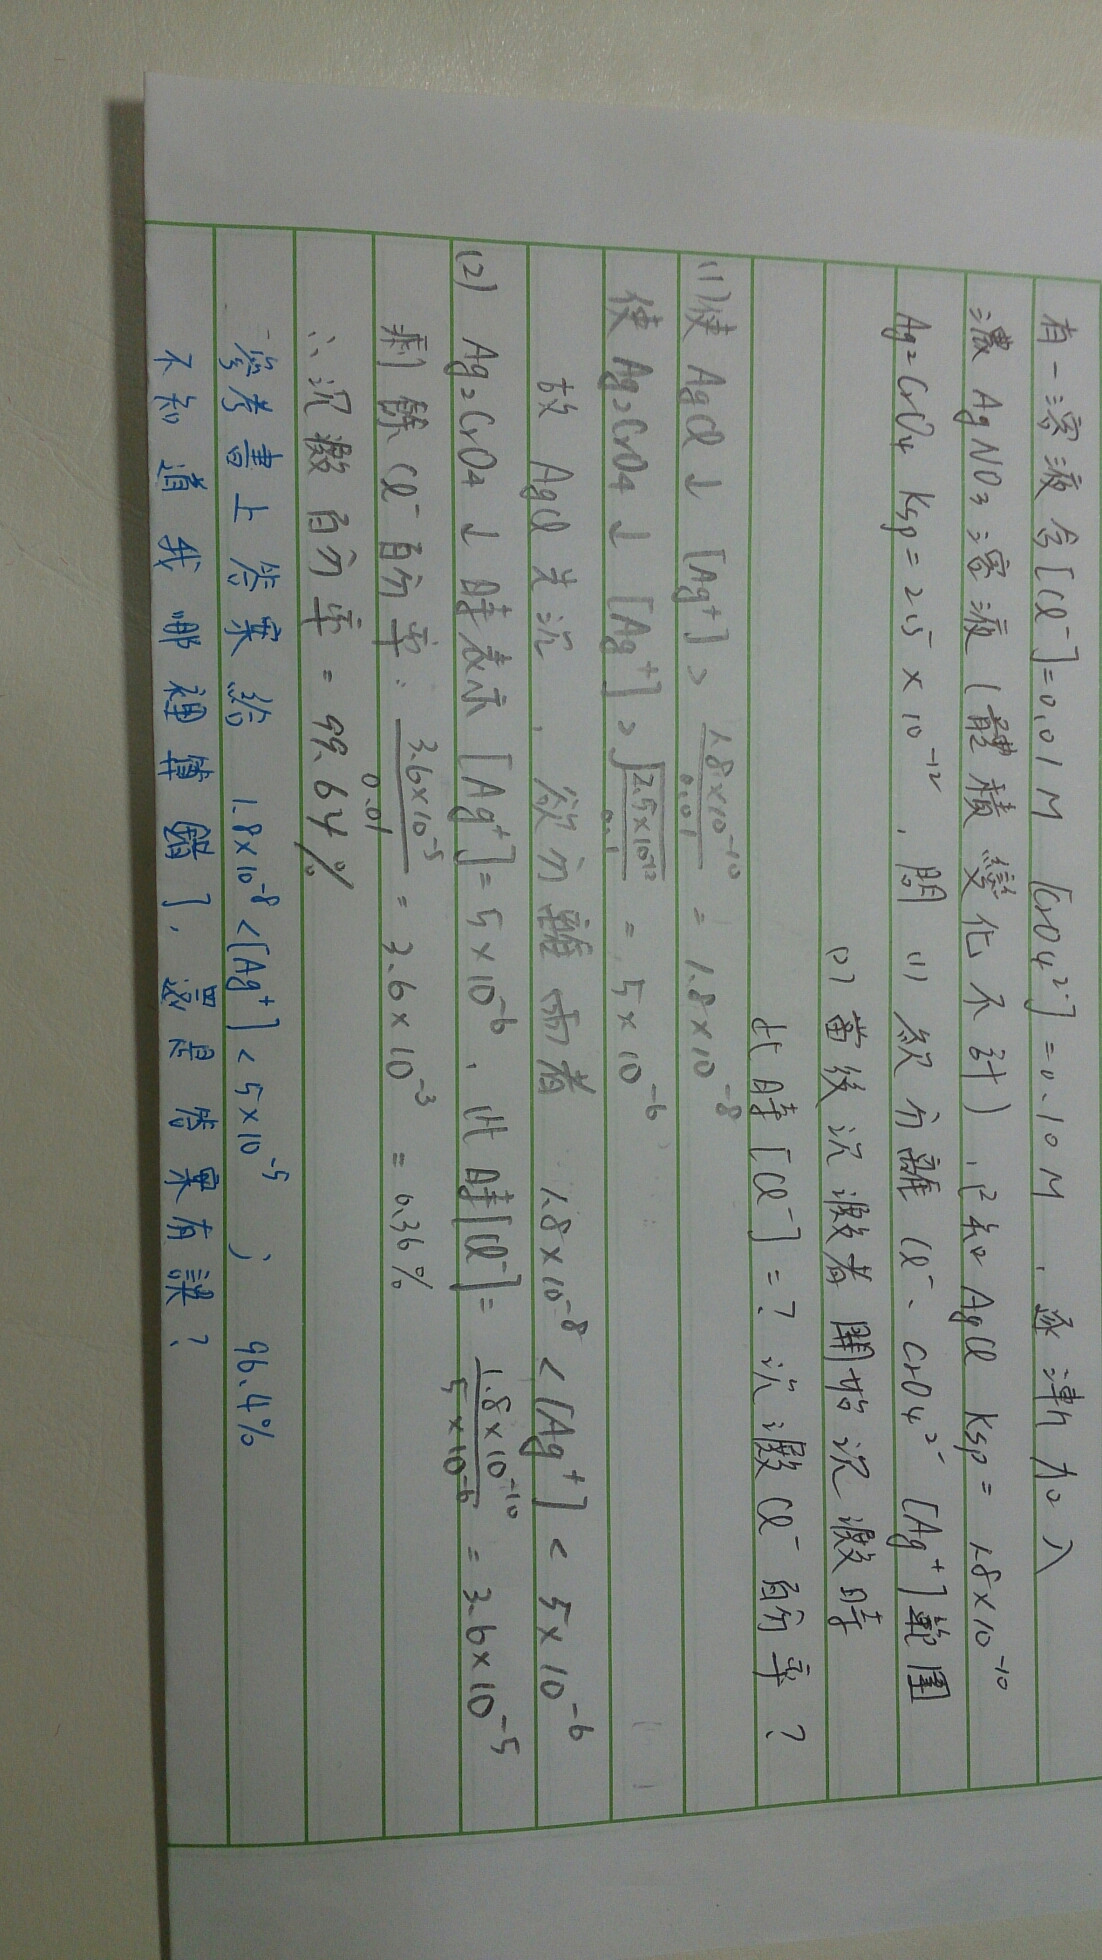 有一溶液含[Cl⁻]=0.01M [CrO4²⁻]=0.10M，逐漸加入
濃AgNO3溶液(體積變化不計)，已知AgCl Ksp= 1.8×10⁻¹⁰
Ag2CrO4 Ksp=2.5×10⁻¹²，問 (1) 欲分離Cl⁻、CrO4²⁻ [Ag⁺]範圍
(2) 當後沉澱者開始沉澱時
此時[Cl⁻]=? 沉澱Cl⁻百分率?
(1)使AgCl↓ [Ag⁺]> 1.8×10⁻¹⁰/0.01 = 1.8×10⁻⁸
使Ag2CrO4↓ [Ag⁺]>√2.5×10⁻¹²/0.1 = 5×10⁻⁶
故AgCl先沉，欲分離兩者 1.8×10⁻⁸<[Ag⁺]< 5×10⁻⁶
(2) Ag2CrO4↓時表示[Ag⁺]=5×10⁻⁶，此時[Cl⁻]= 1.8×10⁻¹⁰/5×10⁻⁶ = 3.6×10⁻⁵
剩餘Cl⁻百分率: 3.6×10⁻⁵/0.01 = 3.6×10⁻³ = 0.36%
∴沉澱百分率 = 99.64%
參考書上答案給 1.8×10⁻⁸<[Ag⁺]<5×10⁻⁵ ; 96.4%
不知道我哪裡算錯了，還是答案有誤?